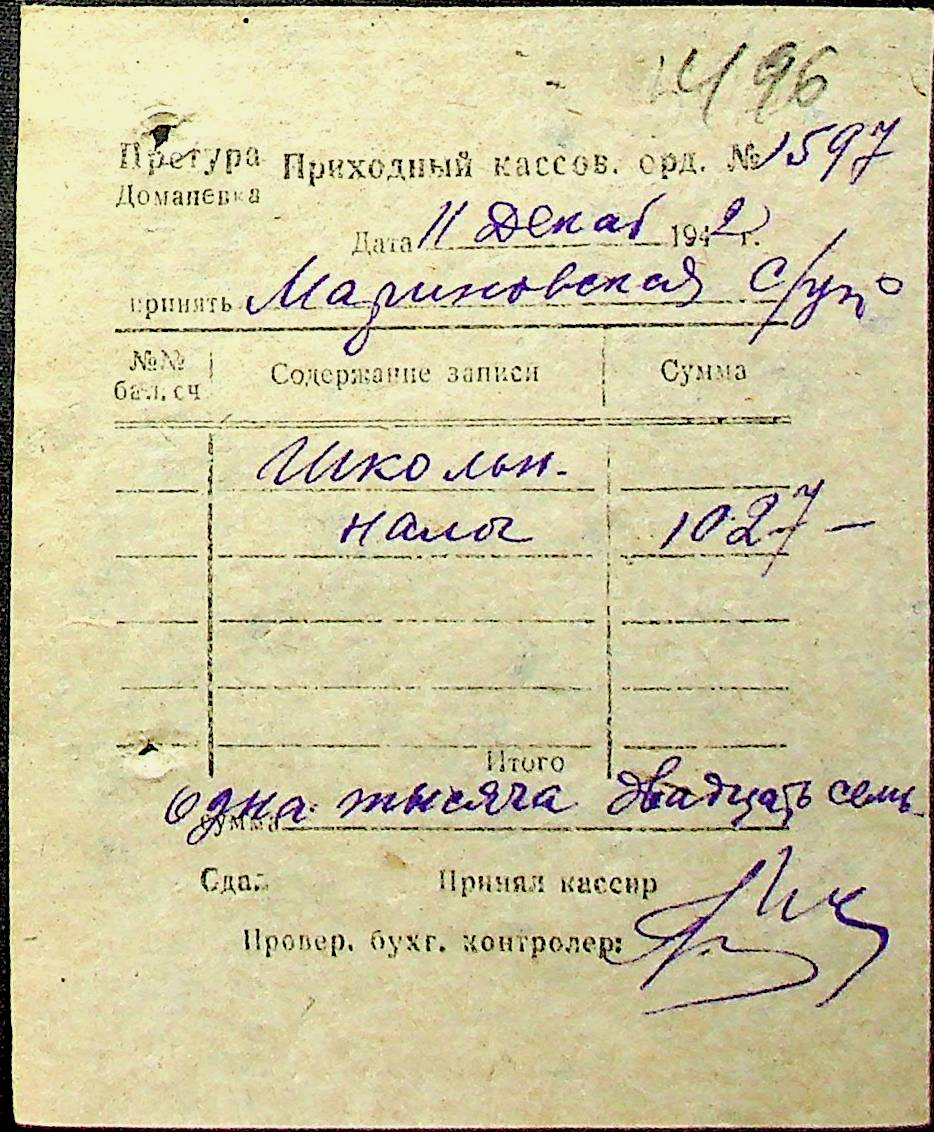 496
Претура Приходный кассов. орд. № 1597
Доманевка
Дата 11 Декаб 1942 г.
принять Мариновская с/упр
№№ бал. сч Содержание записи Сумма
Школьн.
налог 1027 —
Итого
Сумма одна тысяча двадцать семь
Сдал Принял кассир
Провер. бухг. контролер: